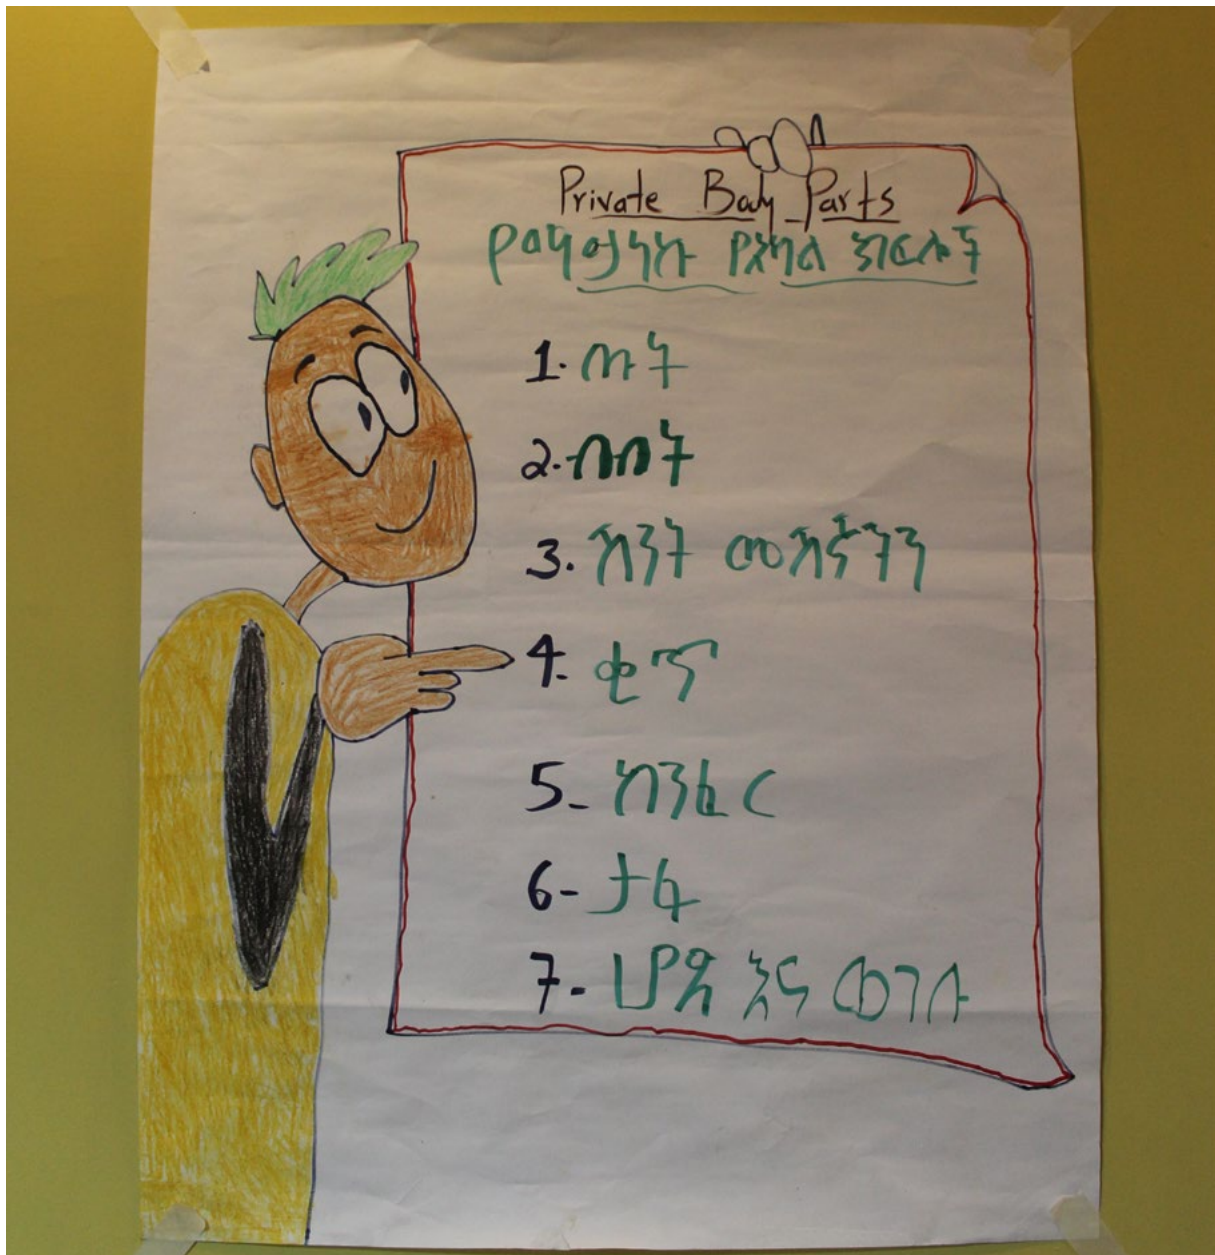 Private Body Parts
የአካል ክፍሎች
1. ጡት
2. ብብት
3. ሽንት መሽኛችን
4. ቂጥ
5- ከንፈር
6- ታፋ
7- ሆድ እና ወገብ